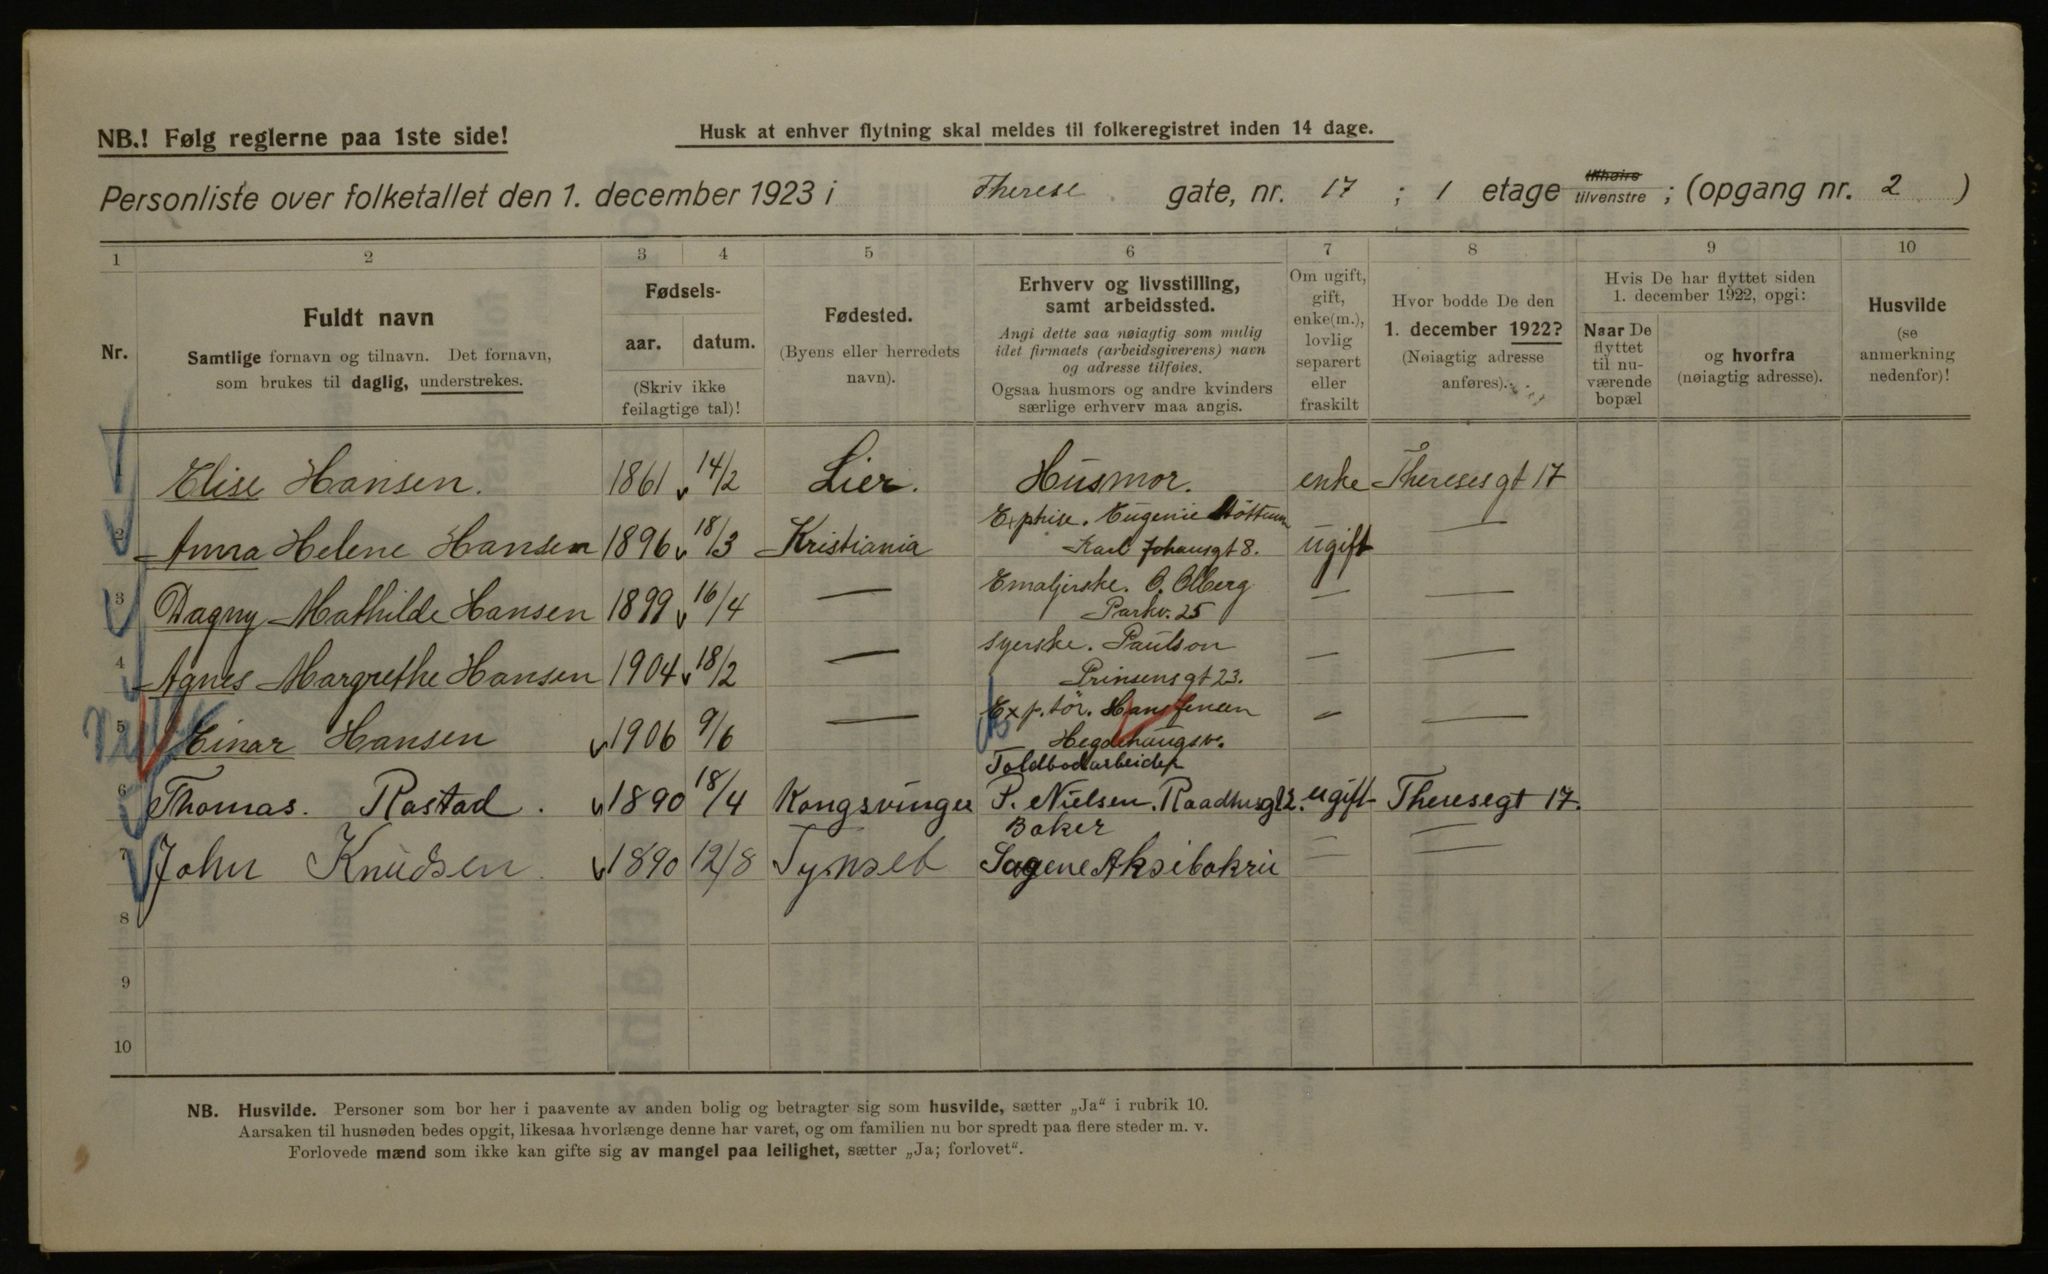 NB.! Følg reglerne paa 1ste side!
Husk at enhver flytning skal meldes til folkeregistret inden 14 dage.
Personliste over folketallet den 1. december 1923 i Therese gate, nr. 17 ; 1 etage tilhøire tilvenstre ; (opgang nr. 2 )
1 2 3 4 5 6 7 8 9 10
Nr.
Fuldt navn
Samtlige fornavn og tilnavn. Det fornavn,
som brukes til daglig, understrekes.
Fødsels-
aar. datum.
(Skriv ikke
feilagtige tal)!
Fødested.
(Byens eller herredets
navn).
Erhverv og livsstilling,
samt arbeidssted.
Angi dette saa nøiagtig som mulig
idet firmaets (arbeidsgiverens) navn
og adresse tilføies.
Ogsaa husmors og andre kvinders
særlige erhverv maa angis.
Om ugift,
gift,
enke(m.),
lovlig
separert
eller
fraskilt
Hvor bodde De den
1. december 1922?
(Nøiagtig adresse
anføres).
Hvis De har flyttet siden
1. december 1922, opgi:
Naar De
flyttet
til nu-
værende
bopæl
og hvorfra
(nøiagtig adresse).
Husvilde
(se
anmerkning
nedenfor)!
Elise Hansen. 1861 14/2 Lier. Husmor. enke Theresesgt 17
2 Anna Helene Hansen 1896 18/3 Kristiania Exptrise. Eugenie
Karl Johansgt 8. ugift —
3 Dagny Mathilde Hansen 1899 16/4 — Emaljerske. O. Olberg — —
Parkv. 25
4 Agnes Margrethe Hansen 1904 18/2 — syerske. Paulson — —
Prinsensgt 23.
5 Einar Hansen 1906 9/6 — Exp.tör. Hans Jensen — —
Hegdehaugsv.
Toldbodarbeider
6 Thomas. Rastad. 1890 18/4 Kongsvinger P. Nielsen. Raadhusgt 2. ugift Theresegt 17.
Baker
7 John Knudsen. 1890 12/8 Tynset Sagene Aksibakri — —
8
9
10
NB. Husvilde. Personer som bor her i paavente av anden bolig og betragter sig som husvilde, sætter „Ja“ i rubrik 10.
Aarsaken til husnøden bedes opgit, likesaa hvorlænge denne har varet, og om familien nu bor spredt paa flere steder m. v.
Forlovede mænd som ikke kan gifte sig av mangel paa leilighet, sætter „Ja; forlovet“.